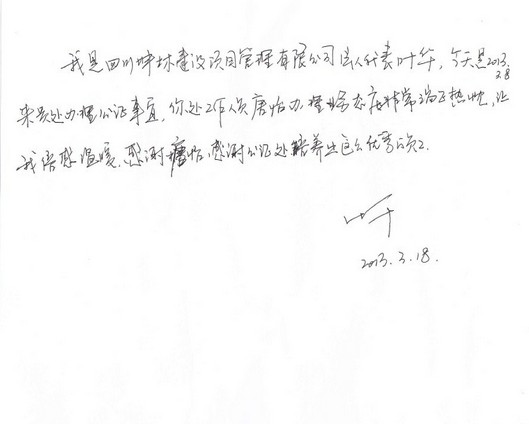 我是四川坤林建设项目管理有限公司法人代表叶华,今天是2013.
来贵处办理公证事宜,你处工作人员唐怡办理业务态度非常端正热忱,让
我倍感温暖,感谢唐怡,感谢公证处培养出这么优秀的员工.
叶
2013.3.18.